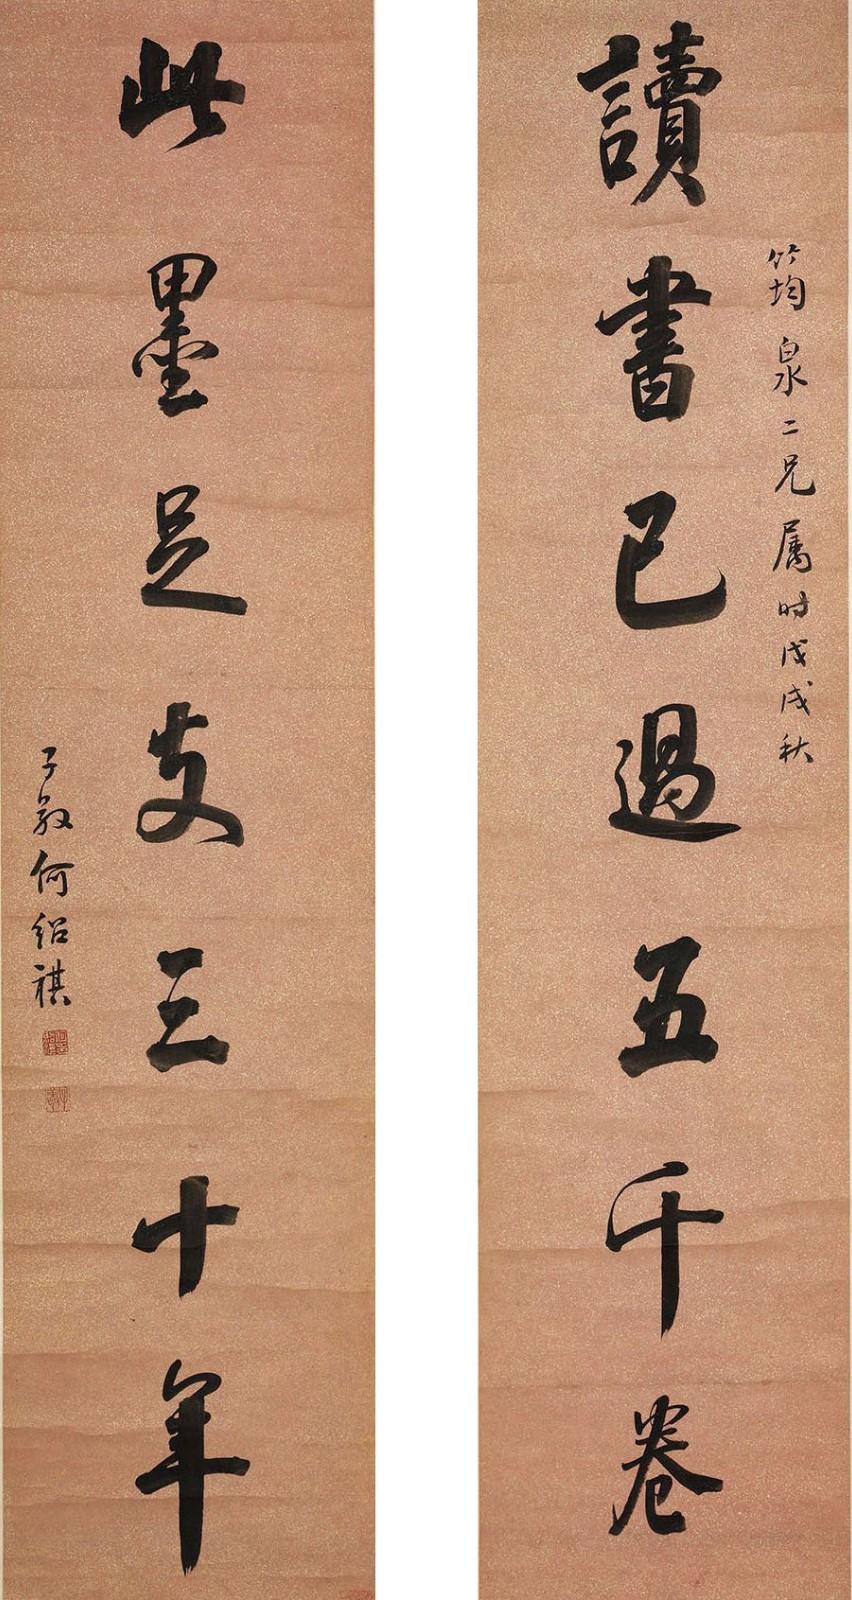 讀書已過五千卷
筠泉二兄属時戊戌秋
此墨足支三十年
子敬何紹祺